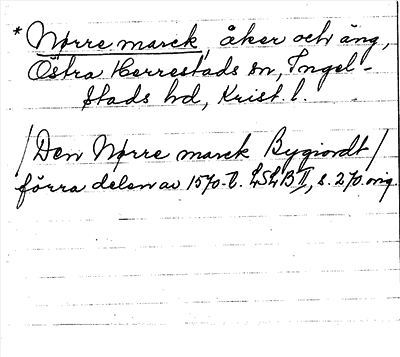 * Nørre marck, åker och äng,
Östra Herrestads sn, Ingel-
stads hd, Krist. l.
/Den Nørre marck Bygiordt/
förra delen av 1570-t. LSLB II, s. 270 orig.